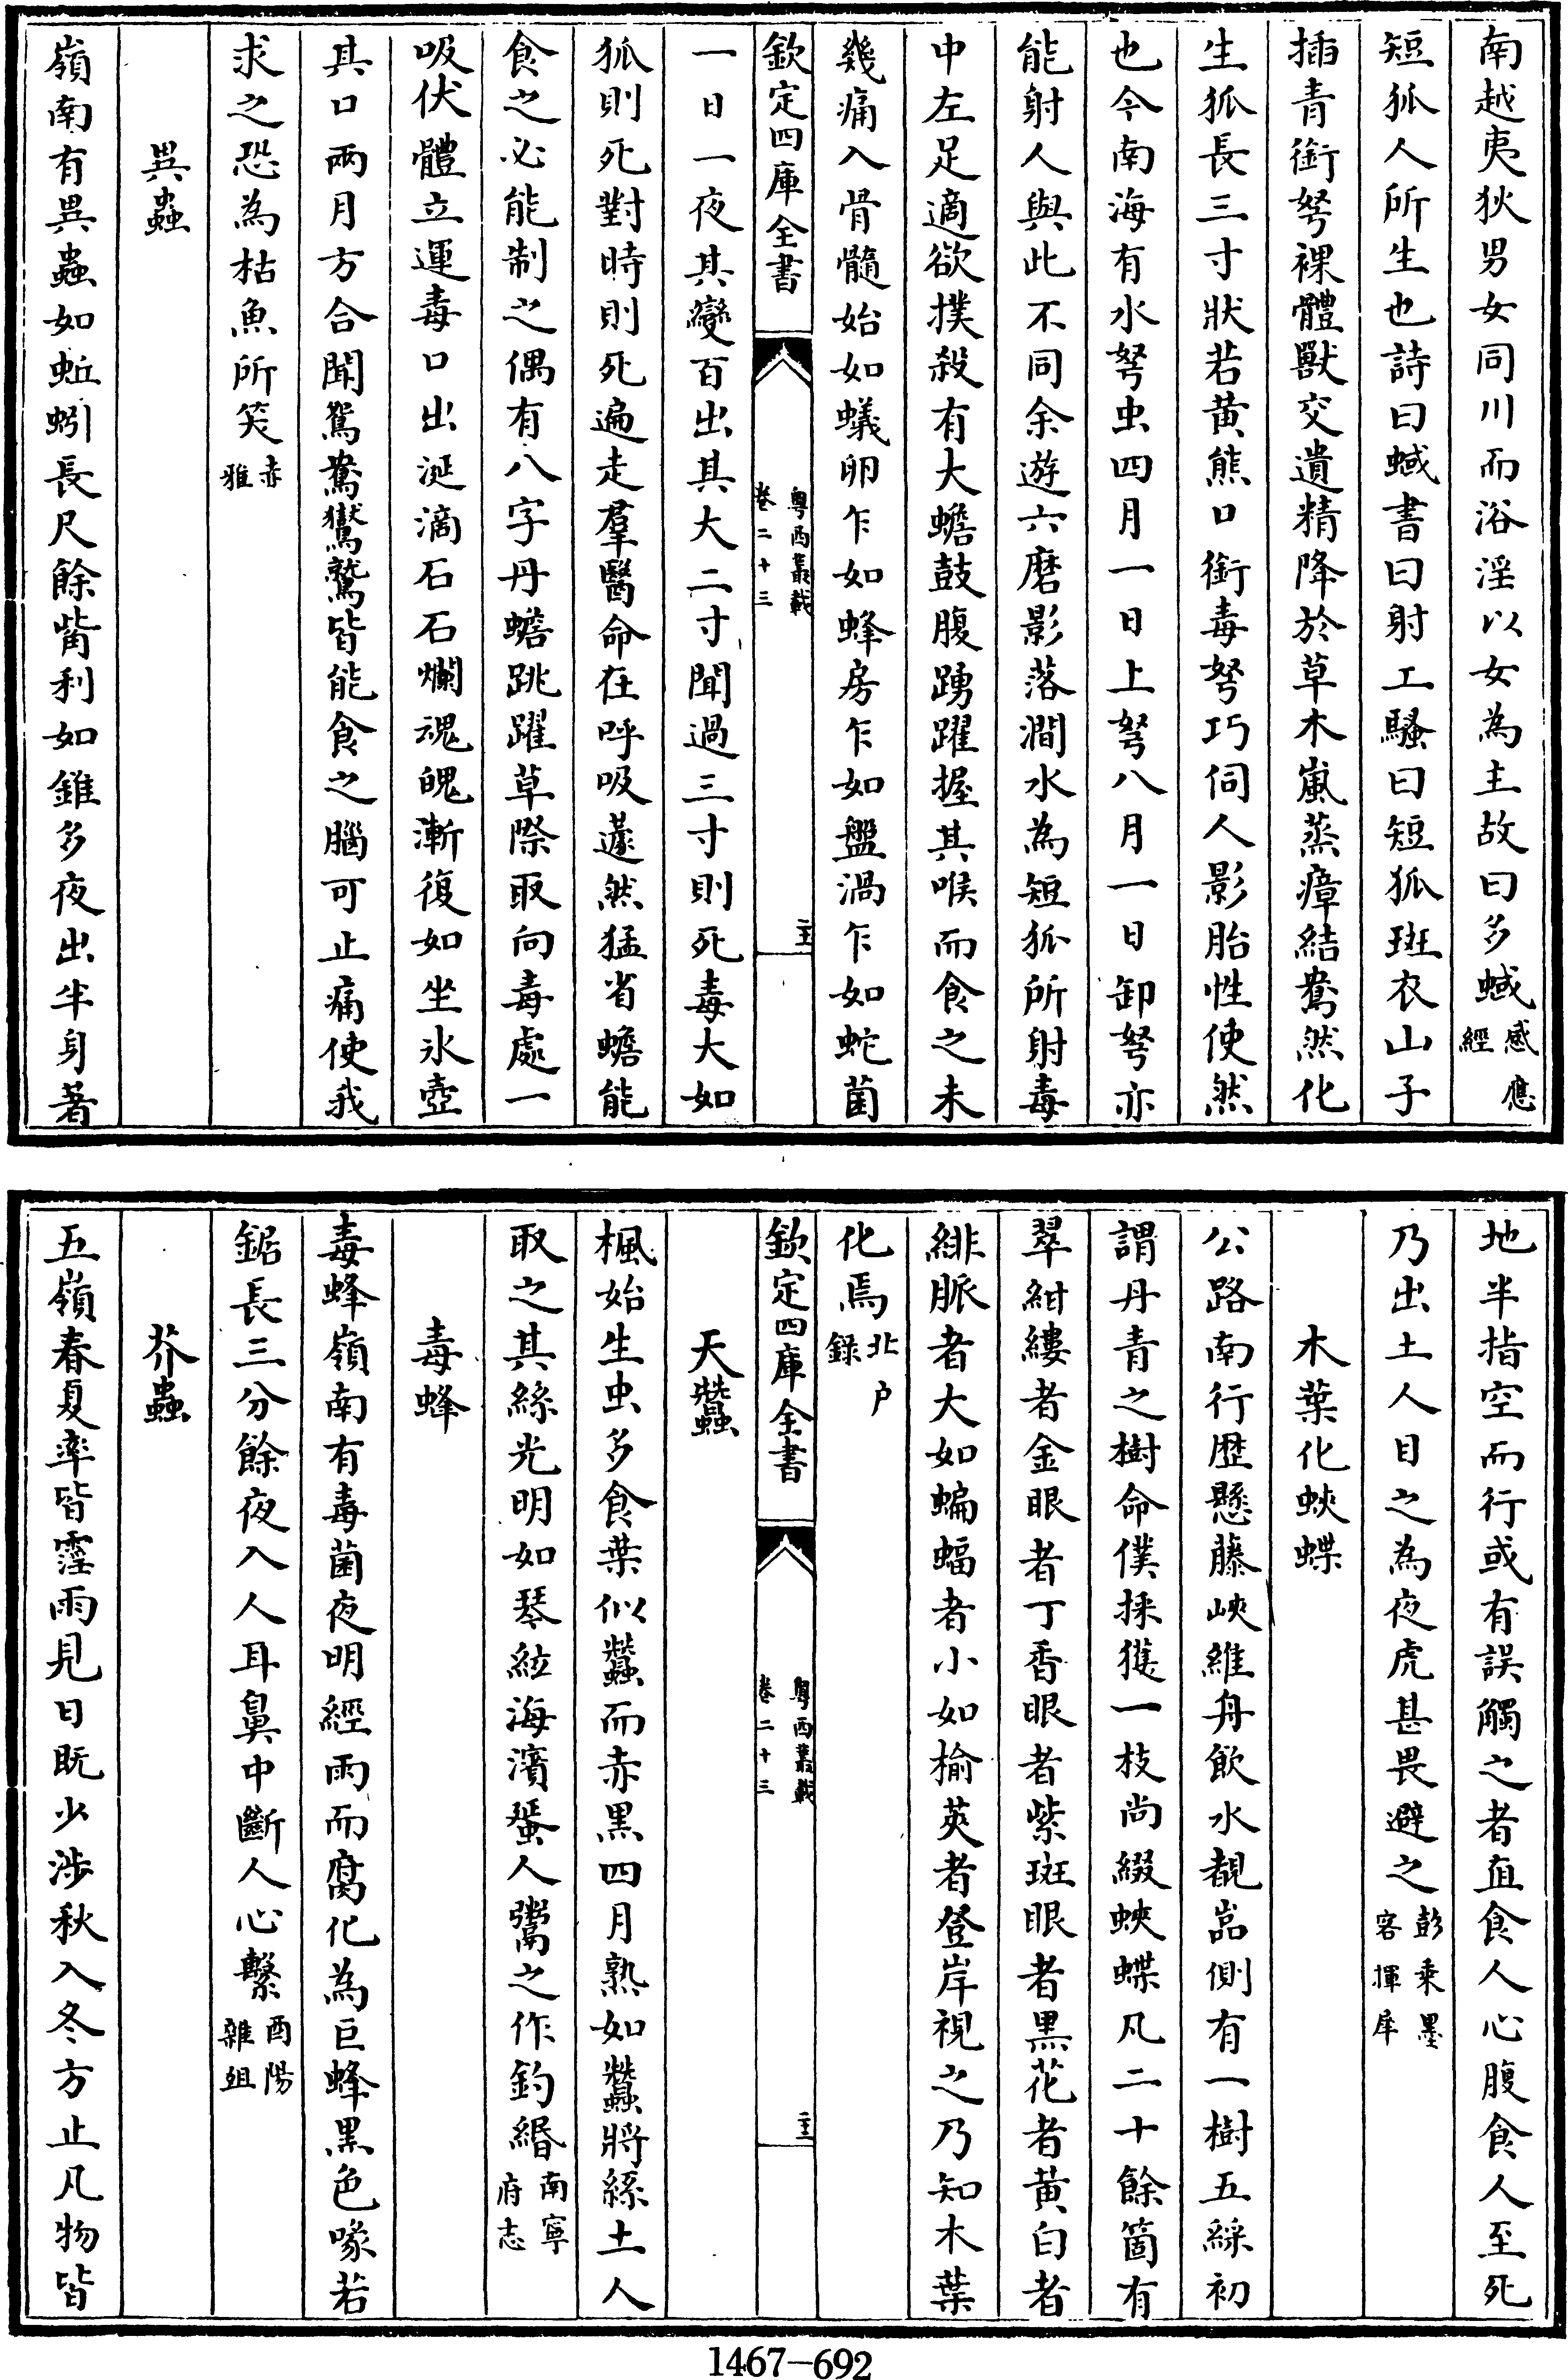 南越夷狄男女同川而浴淫以女為主故曰多蜮感應經
短狐人所生也詩曰蜮書曰射工騷曰短狐斑衣山子
插青銜弩裸體獸交遺精降於草木嵐蒸瘴結鴦然化
生狐長三寸狀若黄熊口銜毒弩巧伺人影胎性使然
也今南海有水弩虫四月一日上弩八月一日卸弩亦
能射人與此不同余遊六磨影落澗水為短狐所射毒
中左足適欲撲殺有大蟾鼓腹踴躍握其喉而食之未
幾痛入骨髓始如蟻卵乍如蜂房乍如盤渦乍如蛇菌
欽定四庫全書
粤西叢載
卷二十三
一日一夜其變百出其大二寸聞過三寸則死毒大如
狐則死對時則死遍走羣醫命在呼吸蘧然猛省蟾能
食之必能制之偶有八字丹蟾跳躍草際取向毒處一
吸伏體立運毒口出涎滴石石爛魂魄漸復如坐氷壺
其口兩月方合聞鴛鴦鸑鷟皆能食之腦可止痛使我
求之恐為枯魚所笑赤雅
異蟲
嶺南有異蟲如蚯蚓長尺餘觜利如錐多夜出半身著
地半指空而行或有誤觸之者直食人心腹食人至死
乃出土人目之為夜虎甚畏避之彭乗墨客揮犀
木葉化蛺蝶
公路南行歷懸藤峽維舟飲水覩嵓側有一樹五綵初
謂丹青之樹命僕採獲一枝尚綴蛺蝶凡二十餘箇有
翠紺縷者金眼者丁香眼者紫斑眼者黒花者黄白者
緋脈者大如蝙蝠者小如榆莢者登岸視之乃知木葉
化焉北户録
欽定四庫全書
粤西叢載
卷二十三
天蠶
楓始生虫多食葉似蠶而赤黒四月熟如蠶將絲土人
取之其絲光明如琴絃海濱蜑人鬻之作釣緡南寧府志
毒蜂
毒蜂嶺南有毒菌夜明經雨而腐化為巨蜂黒色喙若
鋸長三分餘夜入人耳鼻中斷人心繫酉陽雜俎
芥蟲
五嶺春夏率皆霪雨見日既少涉秋入冬方止凡物皆
1467-692